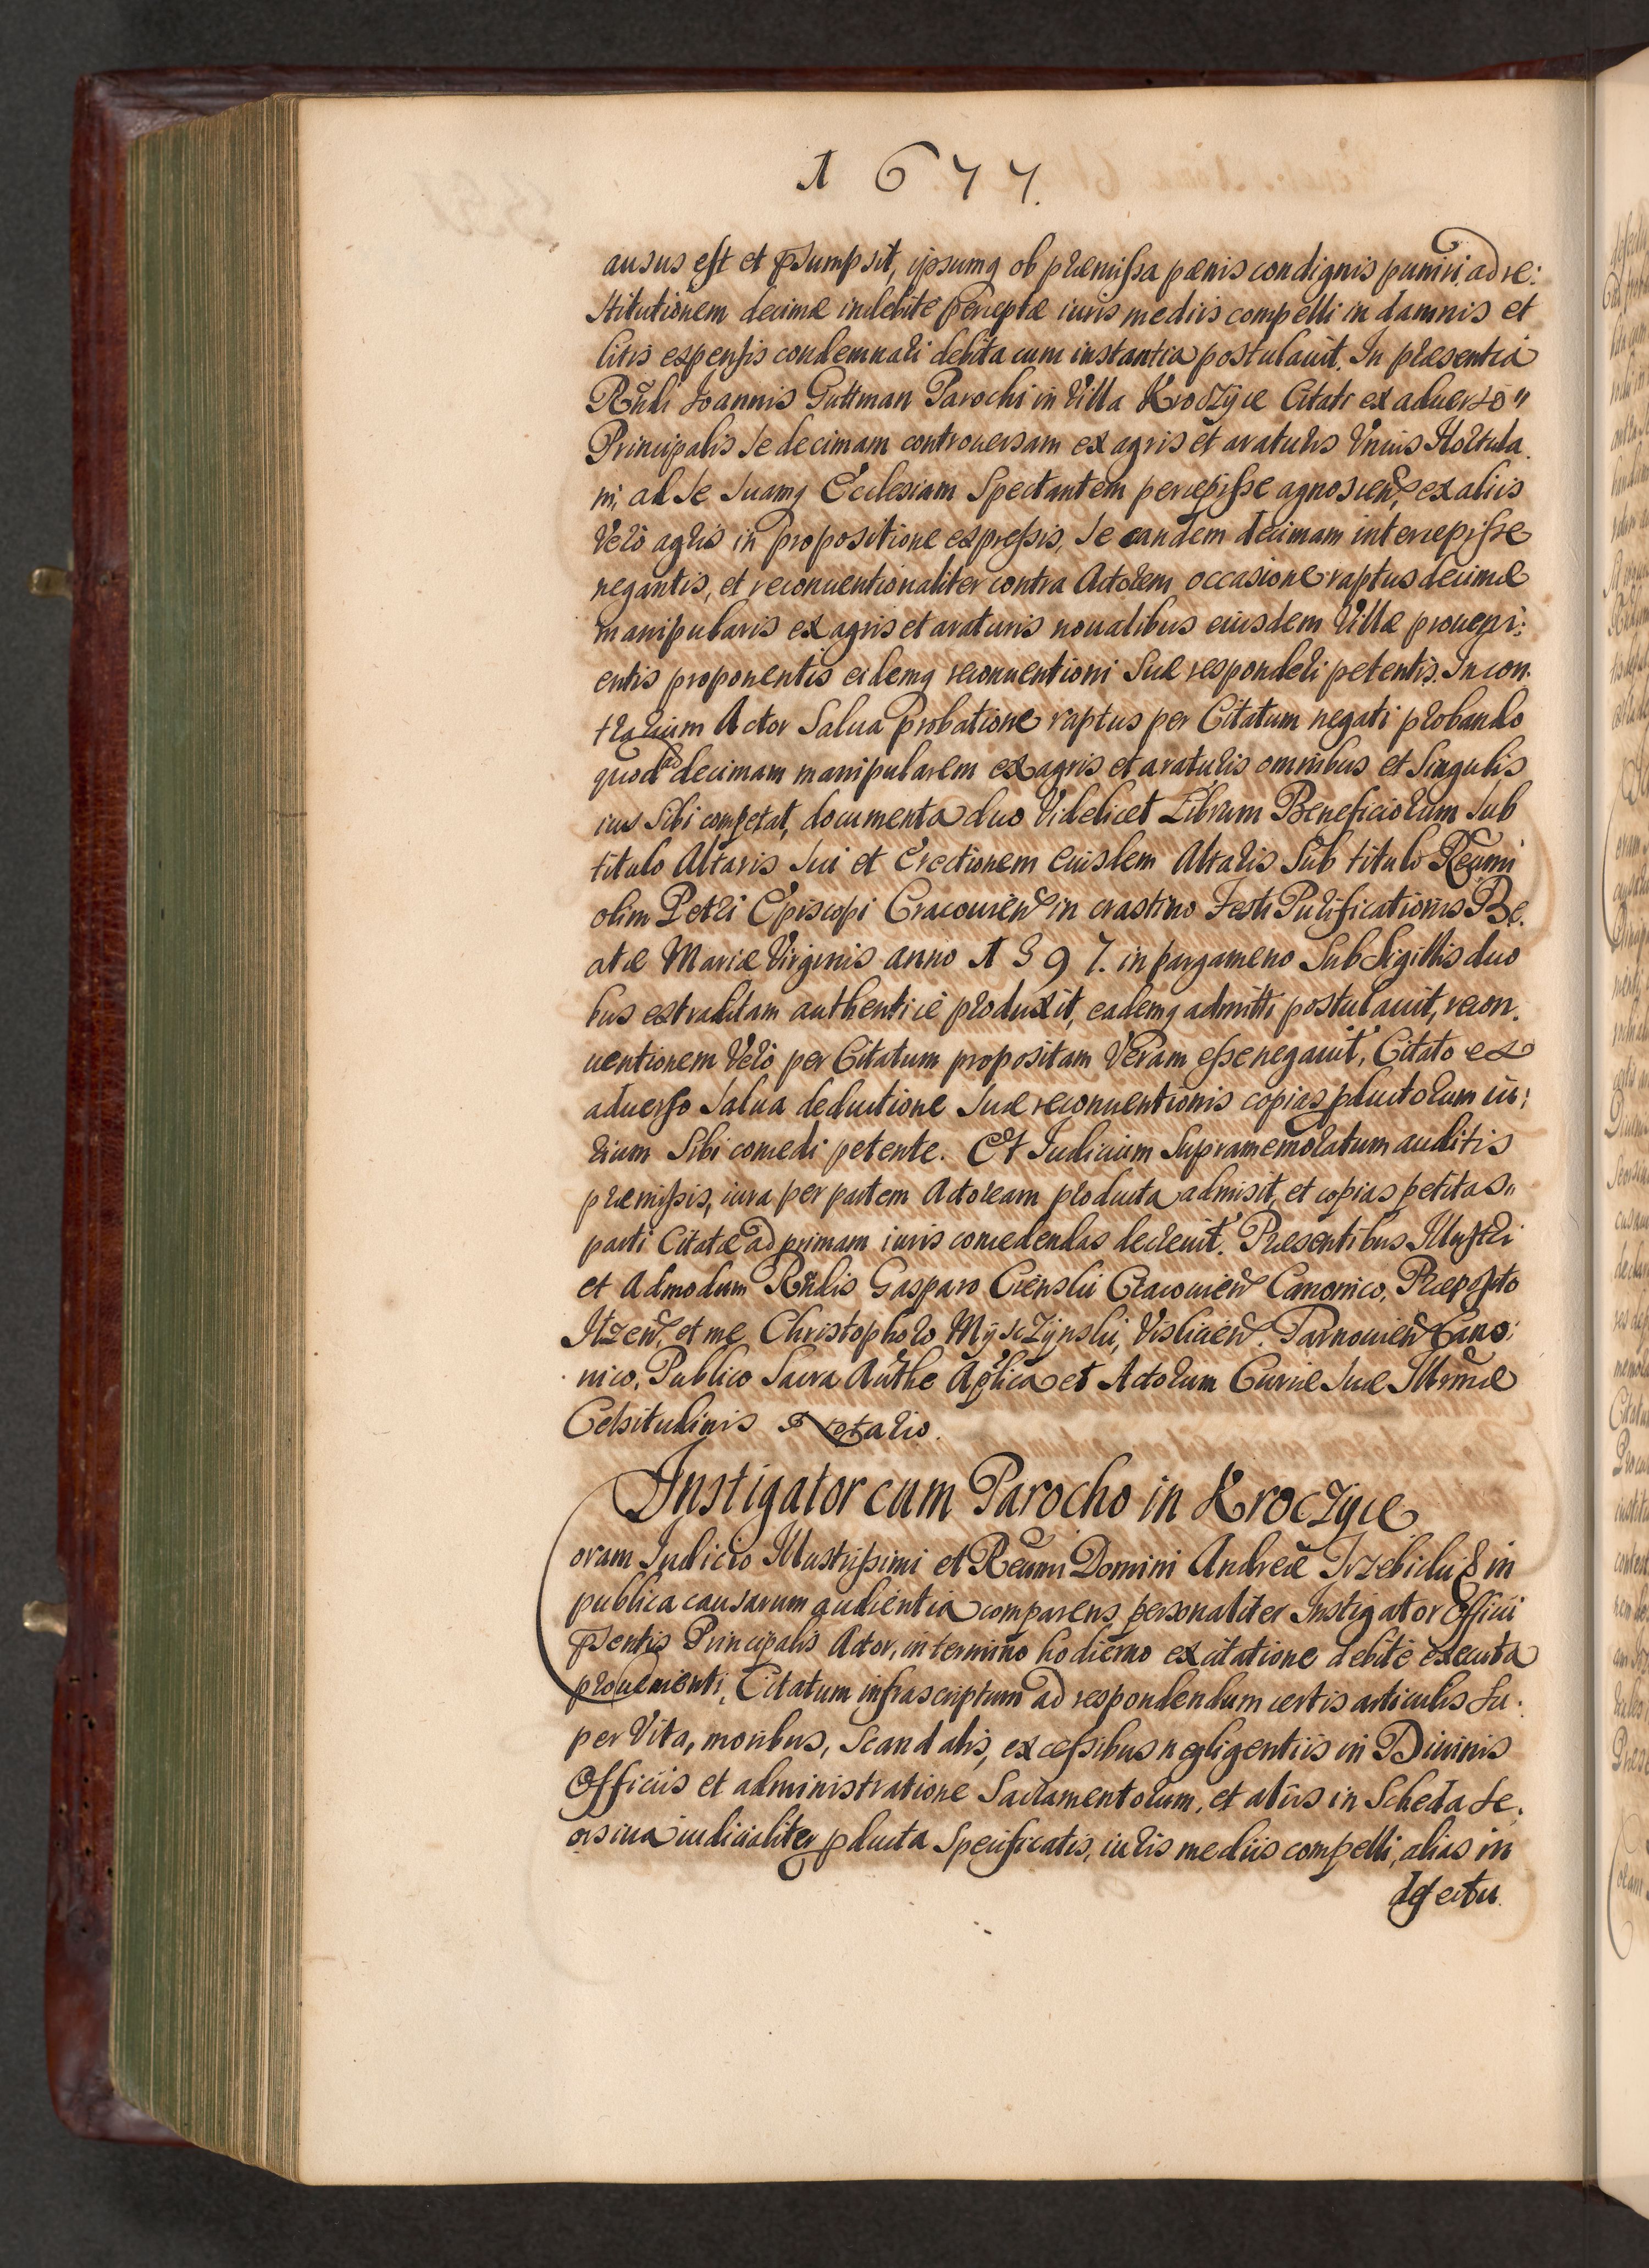 1677.
ausus est et p̄sumpsit, ipsumq ob præmissa pænis condignis puniri, ad re:
stitutionem decimæ indebite perceptæ iuris mediis compelli in damnis et
litis expensis condemnari debita cum instantia postulauit. In præsentia
Rn̄di Joannis Guttman Parochi in Villa Kroczÿce Citati ex aduerso"
Principalis se decimam controuersam ex agris et araturis Vnius Hortula.
ni, ad se suamq Ecclesiam Spectantem percepisse agnoscen̄, ex aliis
Vero agris in propositione expressis, se eandem decimam intercepisse
negantis, et reconuentionaliter contra Actorem occasione raptus decimæ
manipularis ex agris et araturis noualibus eiusdem Villæ proueni:
entis proponentis eidemq reconuentioni Suæ responderi petentis. In con.
trarium Actor Salua probatione raptus per Citatum negati probando
quod ad decimam manipularem ex agris et araturis omnibus et Singulis
ius Sibi competat, documenta duo Videlicet Librum Beneficiorum Sub
titulo Altaris Sui et Erectionem Eiusdem Altaris Sub titulo Reu̅mi
olim Petri Episcopi Cracouien̄ in crastino Festi Purificationis Be.
atæ Mariæ Virginis anno 1397. in pargameno Sub Sigillis duo
bus extraditam authenticè produxit, eademq admitti postulauit, recon.
uentionem Verò per Citatum propositam Veram esse negauit, Citato ex
aduerso Salua deductione Suæ reconuentionis copias p̱ductorum iu:
rium Sibi concedi petente. Et Iudicium Supramemoratum auditis
præmissis, iura per partem Actoream producta admisit, et copias petitas"
parti Citatæ ad primam iuris concedendas decreuit. Præsentibus Illustri
et Admodum Rn̄dis Gasparo Cienski Cracouien̄ Canonico, Præposito
Itzen̄, et me Christophoro Mÿsczÿnski, Vislicien̄. Tarnouien̄ Cano:
nico, Publico Sacra Aut̄he Ap̄lica et Actorum Curiæ Suæ Illr̄mæ
Celsitudinis Notario.
Instigator cum Parocho in Kroczyce
Coram Iudicio Illustrissimi et Reu̅mi Domini Andreæ Trzebicki & in
publica causarum audientia comparens personaliter Instigator Officii
p̄sentis Principalis Actor, in termino hodierno ex citatione debitè executa
prouenienti, Citatum infrascriptum ad respondendum certis articulis Su.
per Vita, moribus, Scandalis, excessibus negligentiis in Diuinis
Officiis et administratione Sacramentorum, et aliis in Scheda Se.
orsiua iudicialiter p̱ducta Specificatis, iuris mediis compelli, alias in
defectu.